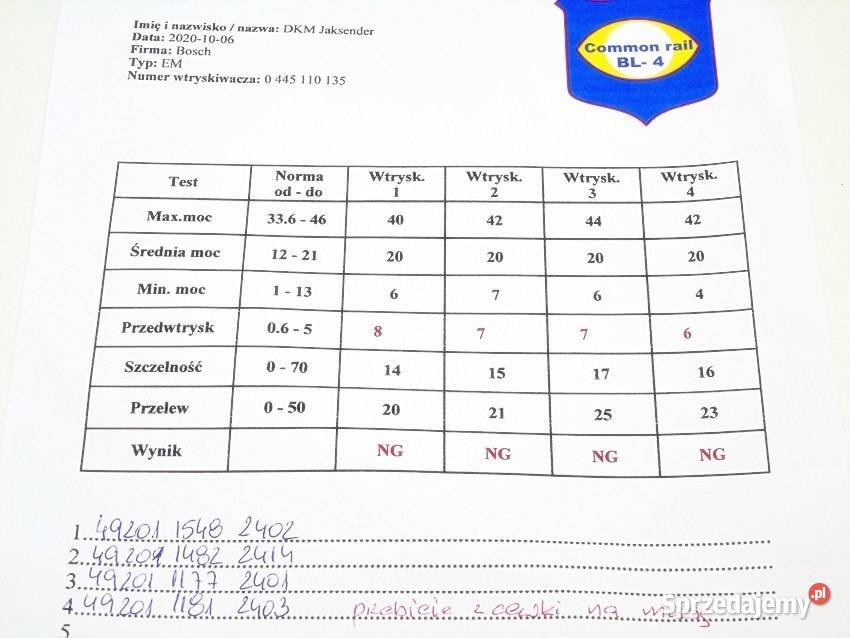 Imię i nazwisko / nazwa: DKM Jaksender
Data: 2020-10-06
Firma: Bosch
Typ: EM
Numer wtryskiwacza: 0 445 110 135
Common rail
BL- 4
Test Norma od - do Wtrysk. 1 Wtrysk. 2 Wtrysk. 3 Wtrysk. 4
Max.moc 33.6 - 46 40 42 44 42
Średnia moc 12 - 21 20 20 20 20
Min. moc 1 - 13 6 7 6 4
Przedwtrysk 0.6 - 5 8 7 7 6
Szczelność 0 - 70 14 15 17 16
Przelew 0 - 50 20 21 25 23
Wynik NG NG NG NG
1. 49201 1548 2402
2. 49201 1482 2414
3. 49201 1177 2401
4. 49201 1181 2403 przebicie z cewki na
5.
Sprzedajemy.pl